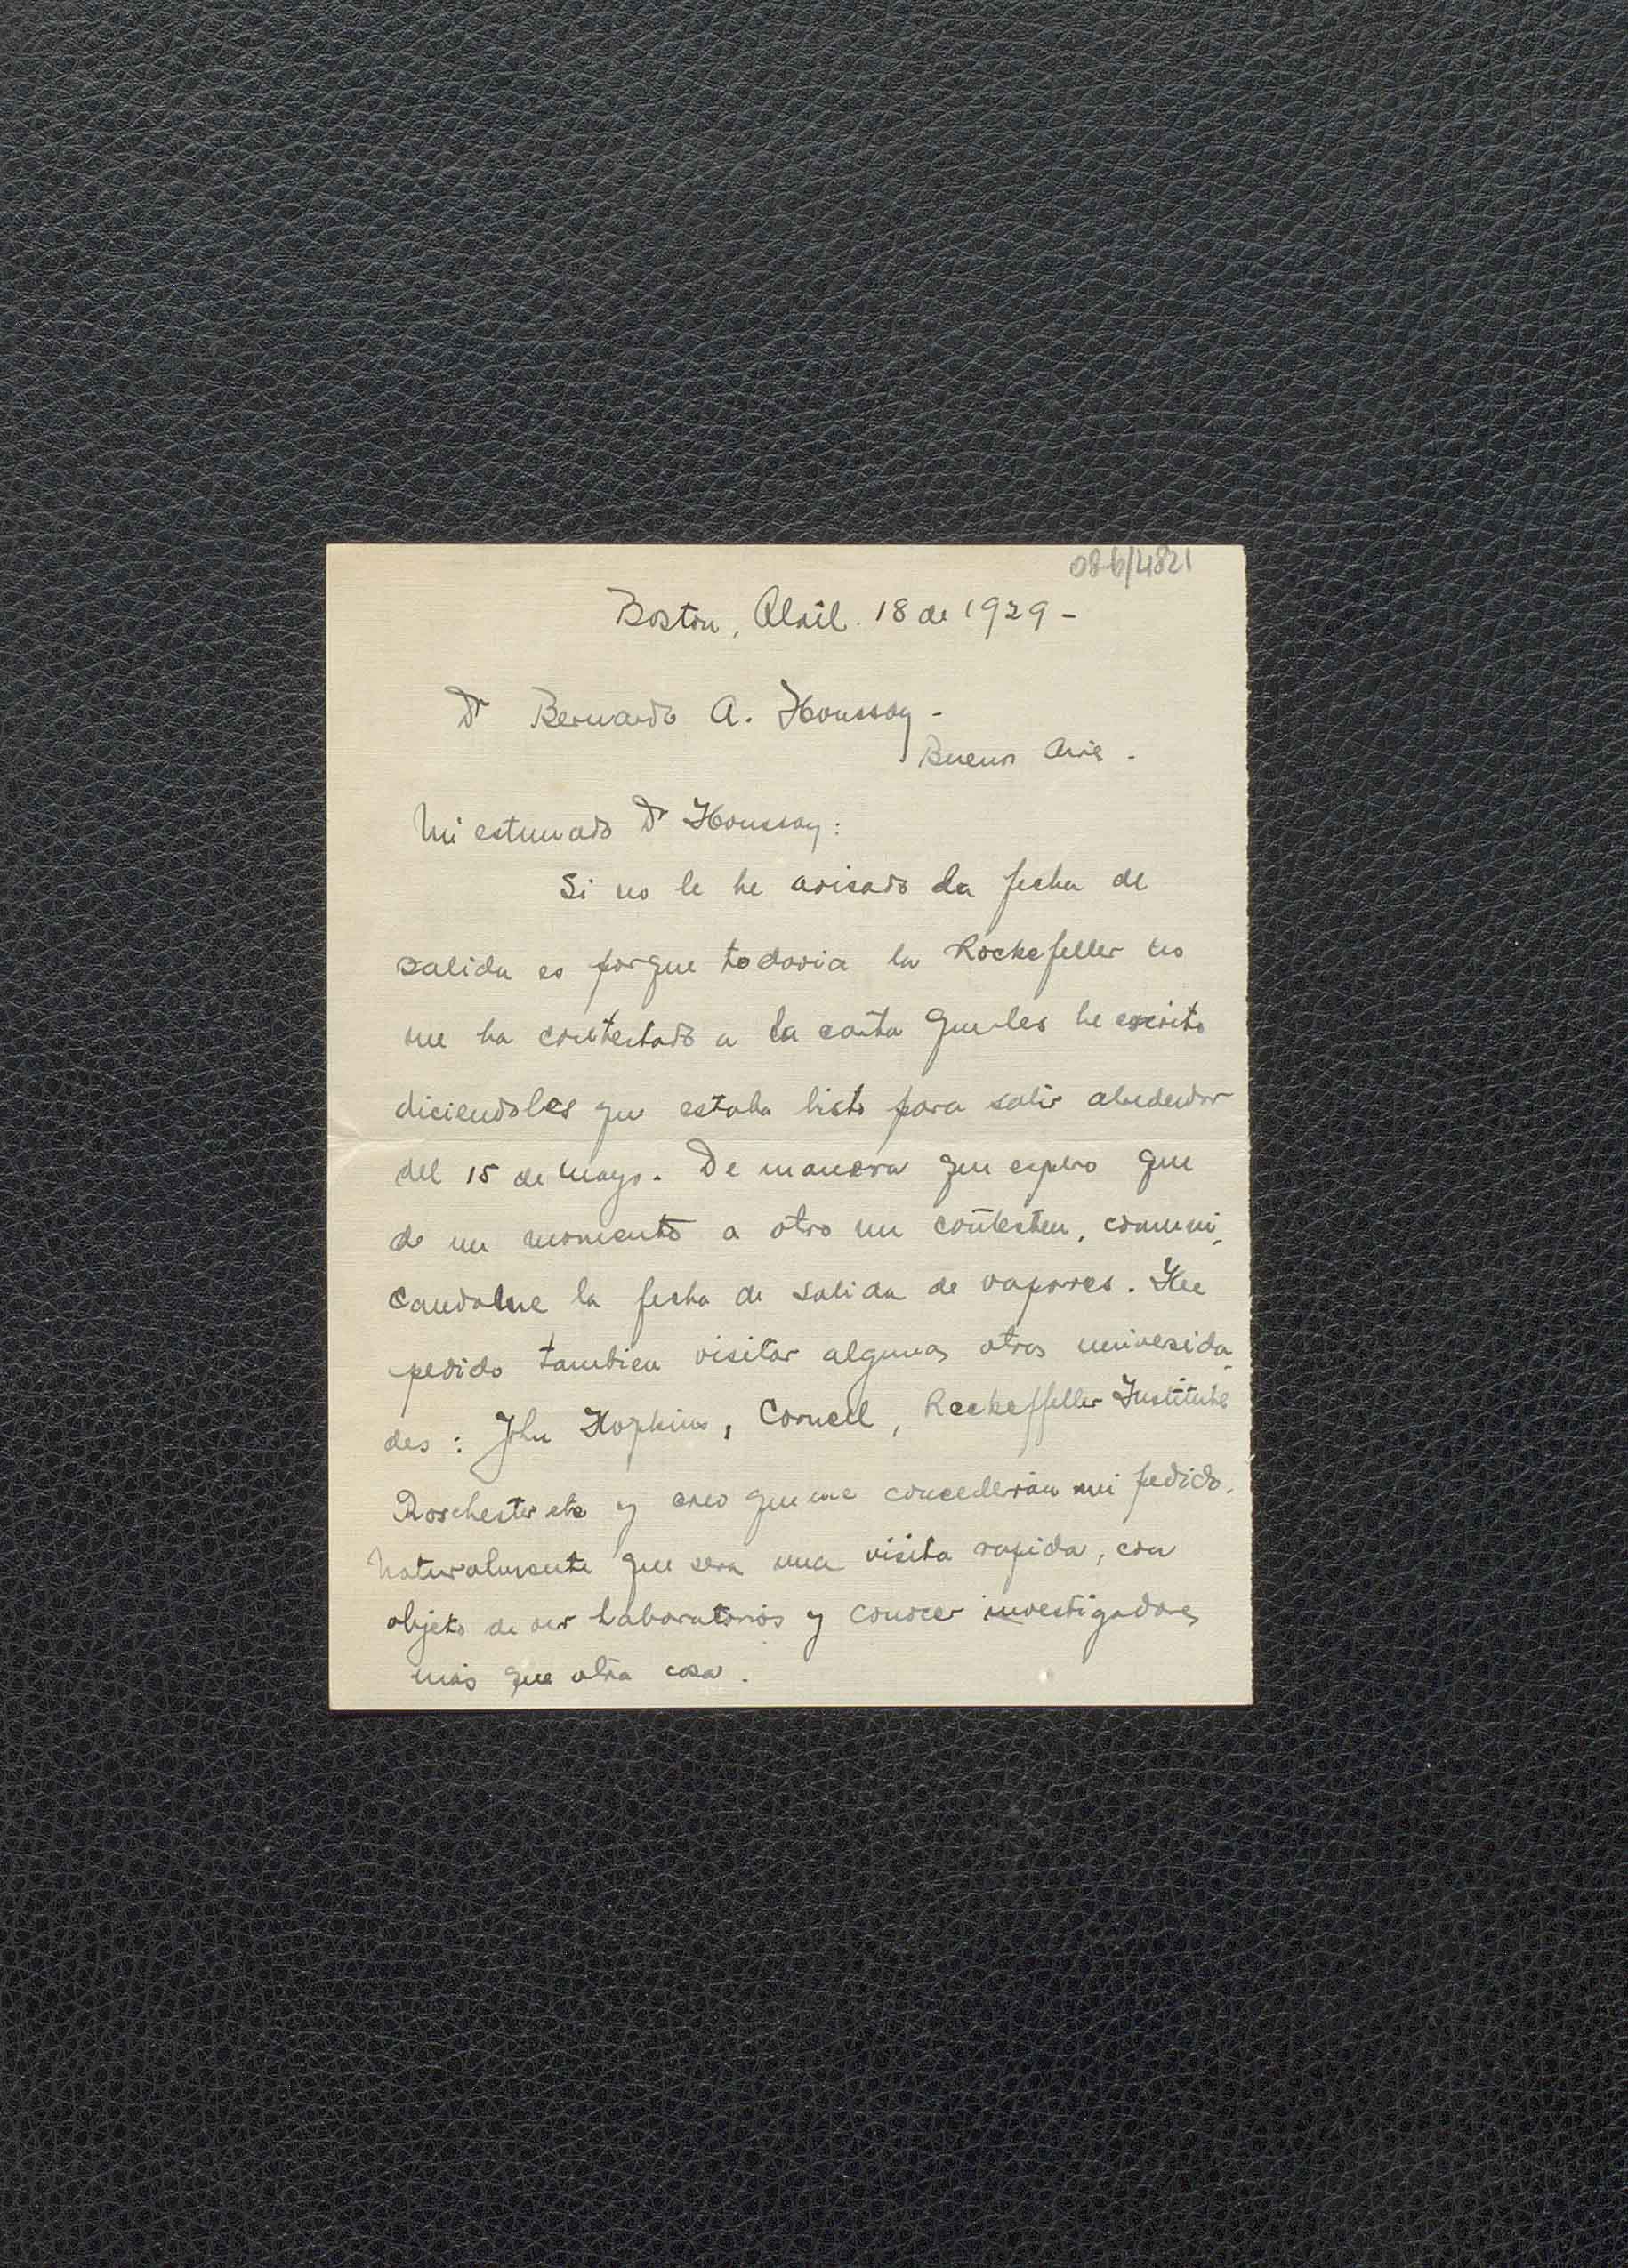 086/4821
Boston, Abril. 18 de 1929 -
Dr Bernardo A. Houssay -
Buenos Aires -
Mi estimado Dr Houssay:
Si no le he avisado la fecha de
salida es porque todavia la Rockefeller no
me ha contestado a la carta que les he escrito
diciendoles que estaba listo para salir alrededor
del 15 de Mayo. De manera que espero que
de un momento a otro me contesten, comuni-
candome la fecha de salida de vapores. He
pedido tambien visitar algunas otras universida-
des: John Hopkins, Cornell, Rockeffeller Institute
Roschester etc y creo que me concederán mi pedido.
Naturalmente que sera una visita rapida, con
objeto de ver laboratorios y conocer investigadores
más que otra cosa.